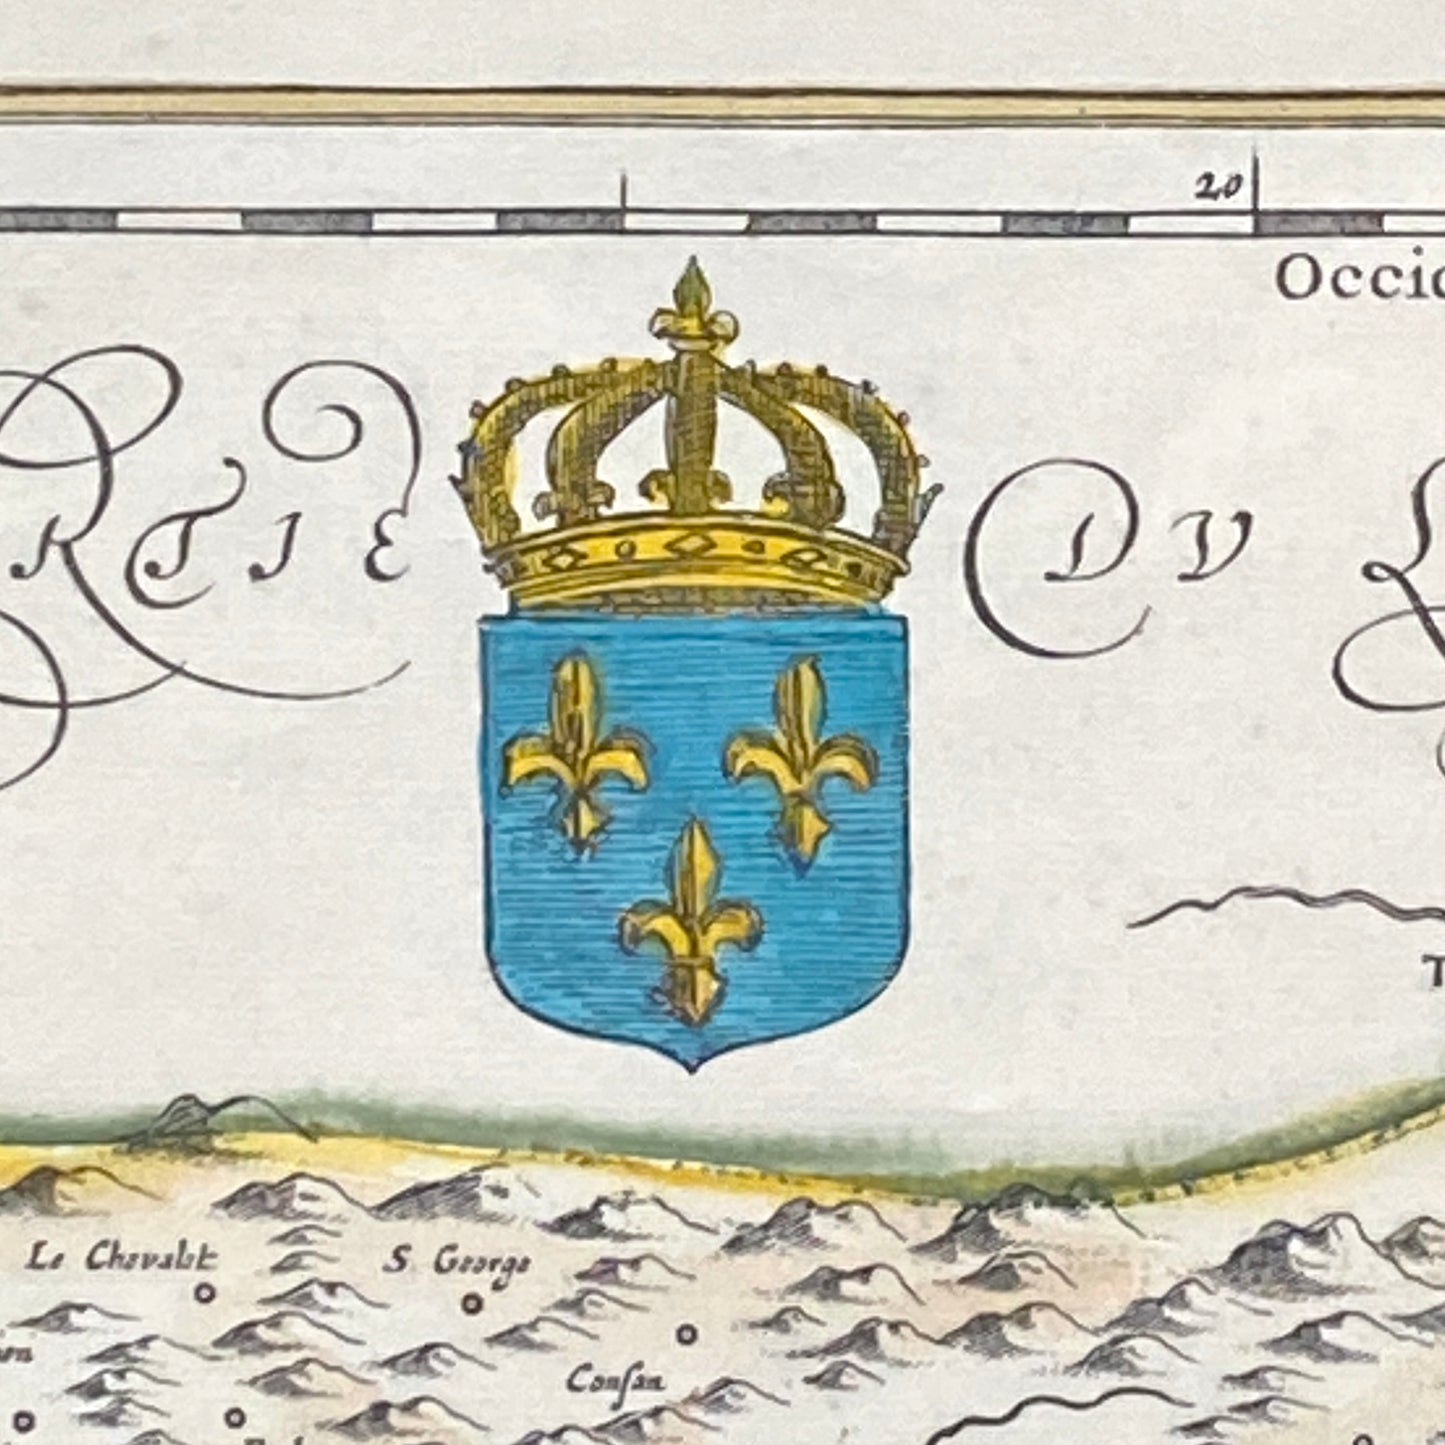 20
Occid
RTIE DV L
T
Le Chevalet
S George
Consan